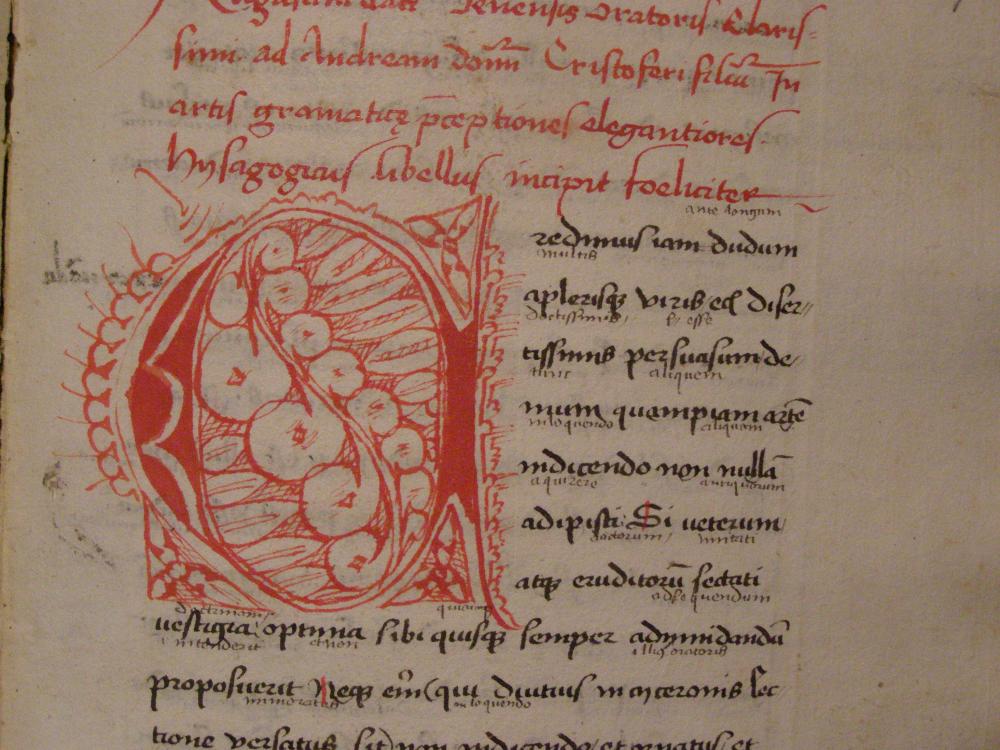 Senensis oratoris Claris-
simi ad Andream domī Cristoferi filiū In
artis gramaticę p̄ceptiones elegantiores
Hysagogicus libellus incipit foeliciter
ante longum
redimus iam dudum
multis
a plerisqꝫ viris eciā diser-
doctissimis esse
tissimis persuasum de-
tunc aliquem
mum quempiam artē
in loquendo aliquam
in dicendo non nullā
aquirere antiquorum
adipisci Si ueterum
doctorum imitati
atqꝫ eruditorū sectati
doctrinam ad sequendum
uestigia optima sibi quisqꝫ semper ad imitandū
intenderit et non illius oratoris
proposuerit Neqꝫ enī (qui diutius in cyceronis lec-
in loquendo
tione versatus sit) non in dicendo et ornatus et